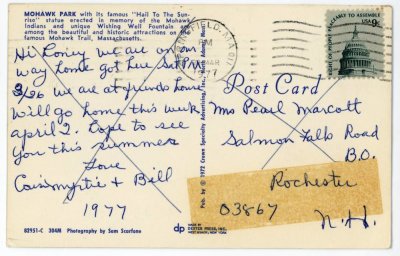 MOHAWK PARK with its famous "Hail To The Sun-
rise" statue erected in memory of the Mohawk
Indians and unique Wishing Well Fountain are
among the beautiful and historic attractions on the
famous Mohawk Trail, Massachusetts.
Hi Loney we are on our
way home got here Sat PM
3/26 we are at friends home
Will go home this week
april 2. Hope to see
you this summer
Love
Cousin Myrtie + Bill
1977
82951-C 304M Photography by Sam Scarfano
Pub. by © 1972 Crown Specialty Advertising, Inc.
dp
MADE BY
DEXTER PRESS, INC.
WEST NYACK, NEW YORK
PM
MAR
1977
PEACEABLY TO ASSEMBLE
USA 9c
Post Card
Mrs Pearl Marcott
Salmon Falls Road
B.O.
Rochester
03867
N.H.